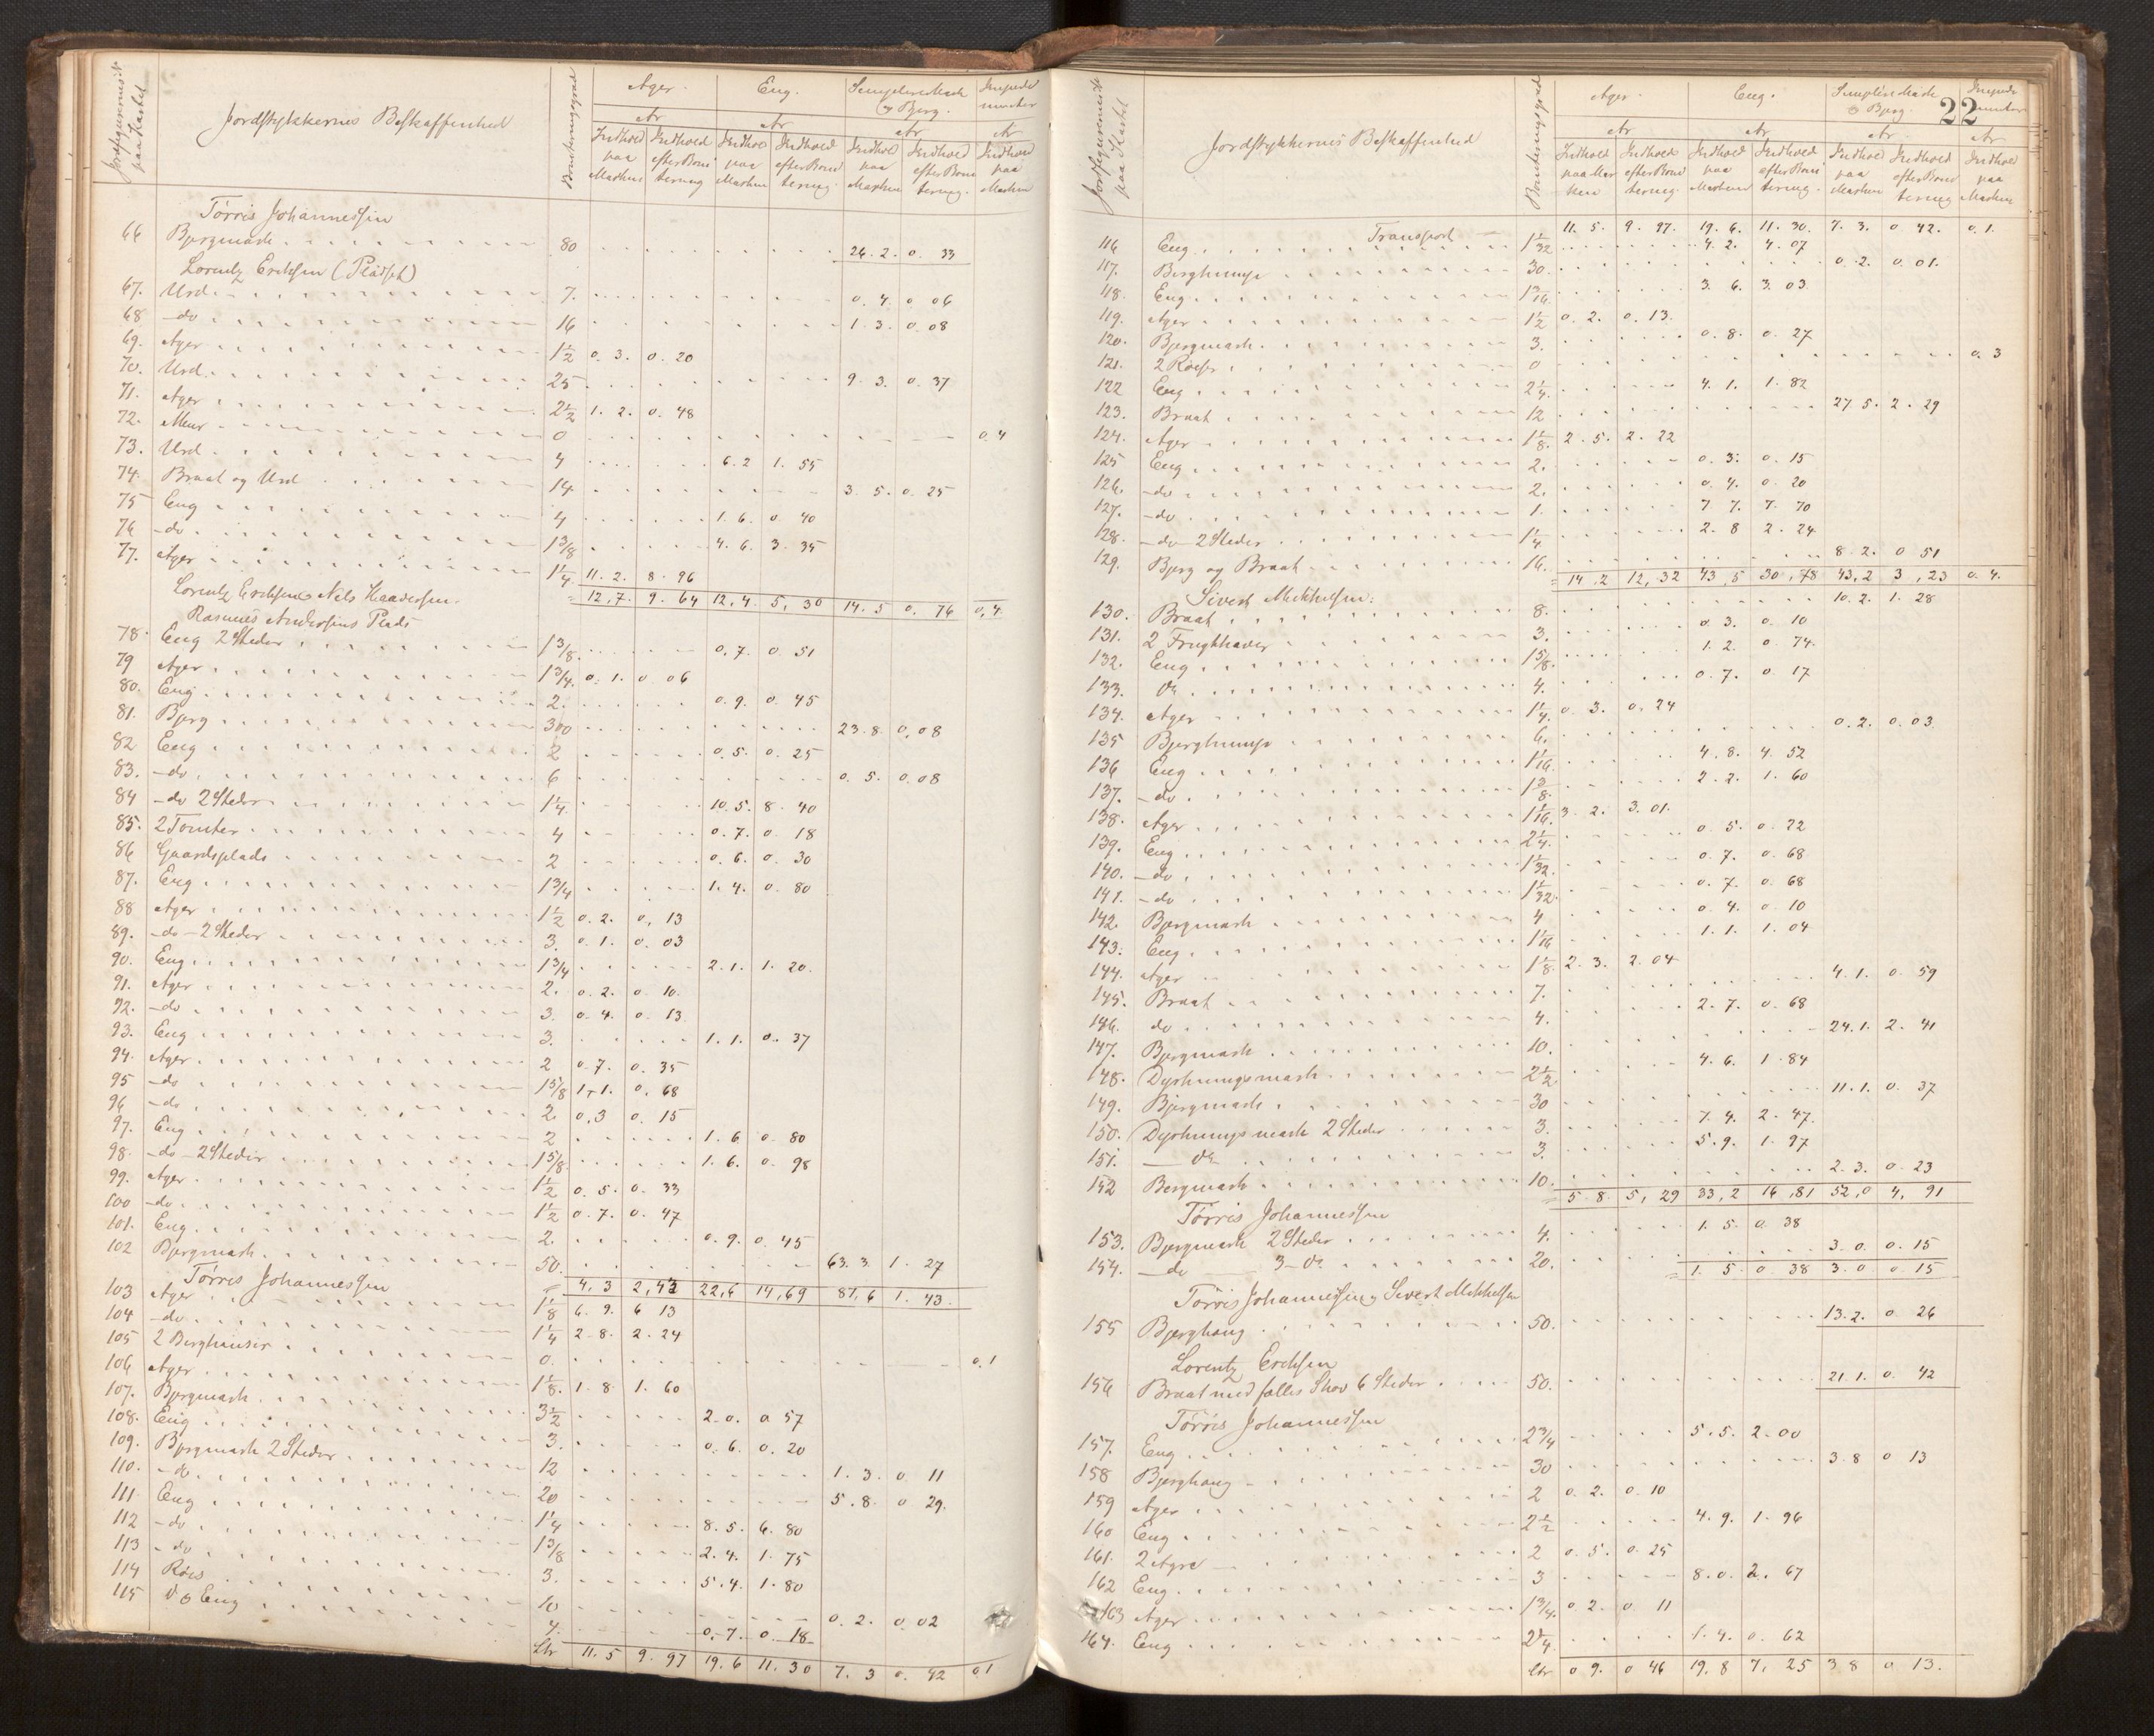 Jordstykkernes Beskaffenhed
Bonteringsgrad
Ager.
Eng.
Ar
Ar
Ar
Ar
Indhold paa Marken
Indhold efter Bonitering
Indhold paa Marken
Indhold efter Bonitering
Indhold paa Marken
Indhold efter Bonitering
Indhold paa Marken
Tørris Johannessen
66 Bjergmark 80 26. 2. 0. 33
Lorentz Eriksen (Pladsen)
67. Urd 7. 0. 4. 0 06
68 do 16 1. 3. 0. 08
69. Ager 1½ 0. 3. 0. 20
70. Urd 25 9. 3. 0. 37
71. Ager 2½ 1. 2. 0. 48
72. Muur 0 0. 4
73. Urd 4 6. 2 1. 55
74. Braat og Urd 14 3. 5. 0. 25
75 Eng 4 1. 6. 0. 40
76 do 1 3/8 4. 6. 3. 35
77. Ager 1¼ 11. 2. 8. 96
= 12,7. 9. 64 12,4. 5, 30 14. 5 0. 76 0,4.
Lorentz Eriksens Nels Haaversen
Rasmus Andersens Plads
78. Eng 2 Steder 1 3/8 0. 7. 0. 51
79 Ager 1 3/4 0. 1. 0 06
80. Eng 2. 0. 9. 0. 45
81. Bjerg 300 23. 8. 0,08
82 Eng 2 0. 5. 0. 25
83. do 6 0. 5. 0. 08
84 do 2 Steder 1¼ 10. 5. 8. 40
85. 2 Tomter 4 0. 7. 0. 18
86 Gaardsplads 2 0. 6. 0. 30
87. Eng 1 3/4 1. 4. 0. 80
88 Ager 1½ 0. 2. 0, 13
89. do 2 Steder 3. 0. 1. 0. 03
90. Eng 1 3/4 2. 1. 1. 20.
91. Ager 2. 0. 2. 0. 10.
92. do 3. 0. 4. 0. 13
93. Eng 3. 1. 1. 0. 37
94. Ager 2 0. 7. 0. 35
95 do 1 5/8 1. 1. 0. 68
96 do 2. 0. 3 0. 15
97. Eng 2 1. 6. 0. 80
98. do 2 Steder 1 5/8 1. 6. 0. 98
99. Ager 1½ 0. 5. 0. 33
100 do 1½ 0. 7. 0. 47
101. Eng 2. 0. 9. 0. 45
102 Bjergmark 50. 63. 3. 1. 27
4, 3 22,6 14,69 87, 6 1. 43.
Tørris Johannessen
103 Ager 1 1/8 6. 9. 6 13
104 do 1¼ 2. 8. 2. 24
105 0. 0. 1
106 Ager 1 1/8. 1. 8. 1. 60
107. Bjergmark 3½ 2. 0. 0 57
108. Eng 3. 0. 6. 0. 20
109. Bjergmark 2 Steder 12 1. 3. 0. 11
110. do 20 5. 8. 0 29.
111 Eng 1¼ 8. 5. 6. 80
112 do 1 3/8 2. 4. 1. 75
113 do 3. 5. 4. 1. 80
114 Røis 10 0. 2. 0. 02
115 Eng 4. 0. 7. 0. 18
Ltr 11. 5 9. 97 19. 6 11. 30 7. 3 0. 42 0 1
22
Jordstykkernes Beskaffenhed
Boniteringsgrad
Ager.
Eng.
Ar
Ar
Ar
Ar
Indhold paa Marken
Indhold efter Bonitering
Indhold paa Marken
Indhold efter Bonitering
Indhold paa Marken
Indhold efter Bonitering
Indhold paa Marken
Transport 11. 5. 9. 97. 19. 6. 11. 30. 7. 3. 0. 42. 0. 1.
116 Eng 1 1/32 4. 2. 4. 07
117. 30. 0. 2. 0. 01.
118. Eng 1 3/16 3. 6. 3. 03.
119. Ager 1½ 0. 2. 0. 13.
120. Bjergmark 3. 0. 8. 0. 27
121. 2 Røiser 0 0. 3
122 Eng 2¼ 4. 1. 1. 82
123. Braat 12 27 5. 2. 29
124. Ager 1 1/8. 2. 5. 2. 22
125 Eng 2. 0. 3. 0. 15
126. do 2. 0. 4. 0. 20
127. do 1. 7 7. 7. 70
128. do 2 Steder 1¼ 2. 8 2. 24
129. Bjerg og Braat 16. 8. 2. 0 51
= 14,2 12,32 43,5 30,78 43,2 3,23 0. 4.
Sivert Mikkelsen.
130. Braat 8. 10. 2. 1. 28
131. 2 Frugthaver 3. 0. 3. 0. 10
132. Eng 1 5/8. 1. 2. 0. 74.
133. do 4. 0. 7. 0. 17
134. Ager 1¼. 0. 3. 0. 24
135 6. 0. 2. 0. 03
136 Eng 1 1/16. 4. 8. 4. 52
137. do 1 3/8. 2. 2. 1. 60
138. Ager 1 1/16. 3. 2. 3. 01.
139. Eng 2¼. 0. 5. 0. 22
140. do 1 1/32. 0. 7. 0. 68
141. do 1 1/32. 0. 7. 0. 68
142. Bjergmark 4 0. 4. 0. 10
143. Eng 1 1/16 1. 1. 1. 04
144. Ager 1 1/8. 2. 3. 2. 04
145. Braat 7. 4. 1. 0. 59
146. do 4. 2. 7. 0. 68
147. Bjergmark 10. 24. 1. 2. 41
148. Dyrkningsmark 2½ 4. 6. 1. 84
149. Bjergmark 30 11. 1. 0. 37
150. Dyrkningsmark 2 Steder 3. 7. 4. 2. 47.
151. do 3. 5. 9. 1. 97
152 Bergmark 10. 2. 3. 0. 23
5. 8. 5, 29 33,2 16,81 52,0 4, 91
Tørris Johannessen
153. Bjergmark 2 Steder 4. 1. 5. 0. 38
154. do 3 do 20. 3. 0. 0. 15
= 1. 5 0. 38 3. 0 0. 15
Tørris Johannessen og Sivert Mikkelsen
155 Bjerghaug 50. 13. 2. 0. 26
Lorentz Eriksen
156 Braat med fælles Skov 6 Steder 50. 21. 1. 0. 42
Tørris Johannessen
157. Eng 2 3/4 5. 5. 2. 00
158 Bjerghaug 30 3. 8 0 13
159 Ager 2 0. 2. 0. 10
160 Eng 2½ 4. 9. 1. 96
161. 2 Agre 2 0. 5. 0. 25
162 Eng 3 8. 0. 2. 67
163 Ager 1 3/4. 0 2. 0. 11
164. Eng 2¼. 1. 4. 0. 62
Ltr 0 9. 0 46 19. 8 7, 25 3 8 0 13.